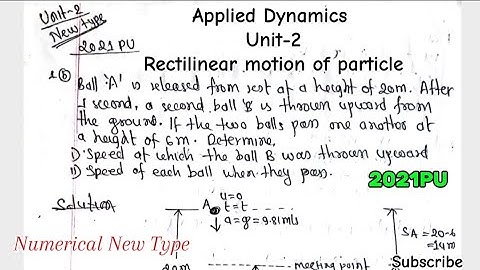 Unit-2
New type
2021 PU
Applied Dynamics
Unit-2
Rectilinear motion of particle
Ball 'A' is released from rest at a height of 20m. After
1 second, a second ball B is thrown upward from
the ground. If the two balls pass one another at
a height of 6m. Determine,
I) Speed at which the ball B was thrown upward
II) Speed of each ball when they pass.
2021PU
Solution
A
u=0
t=t
a=g=9.81m/s
SA=20-6
=14m
Numerical New Type
20m
meeting point
Subscribe